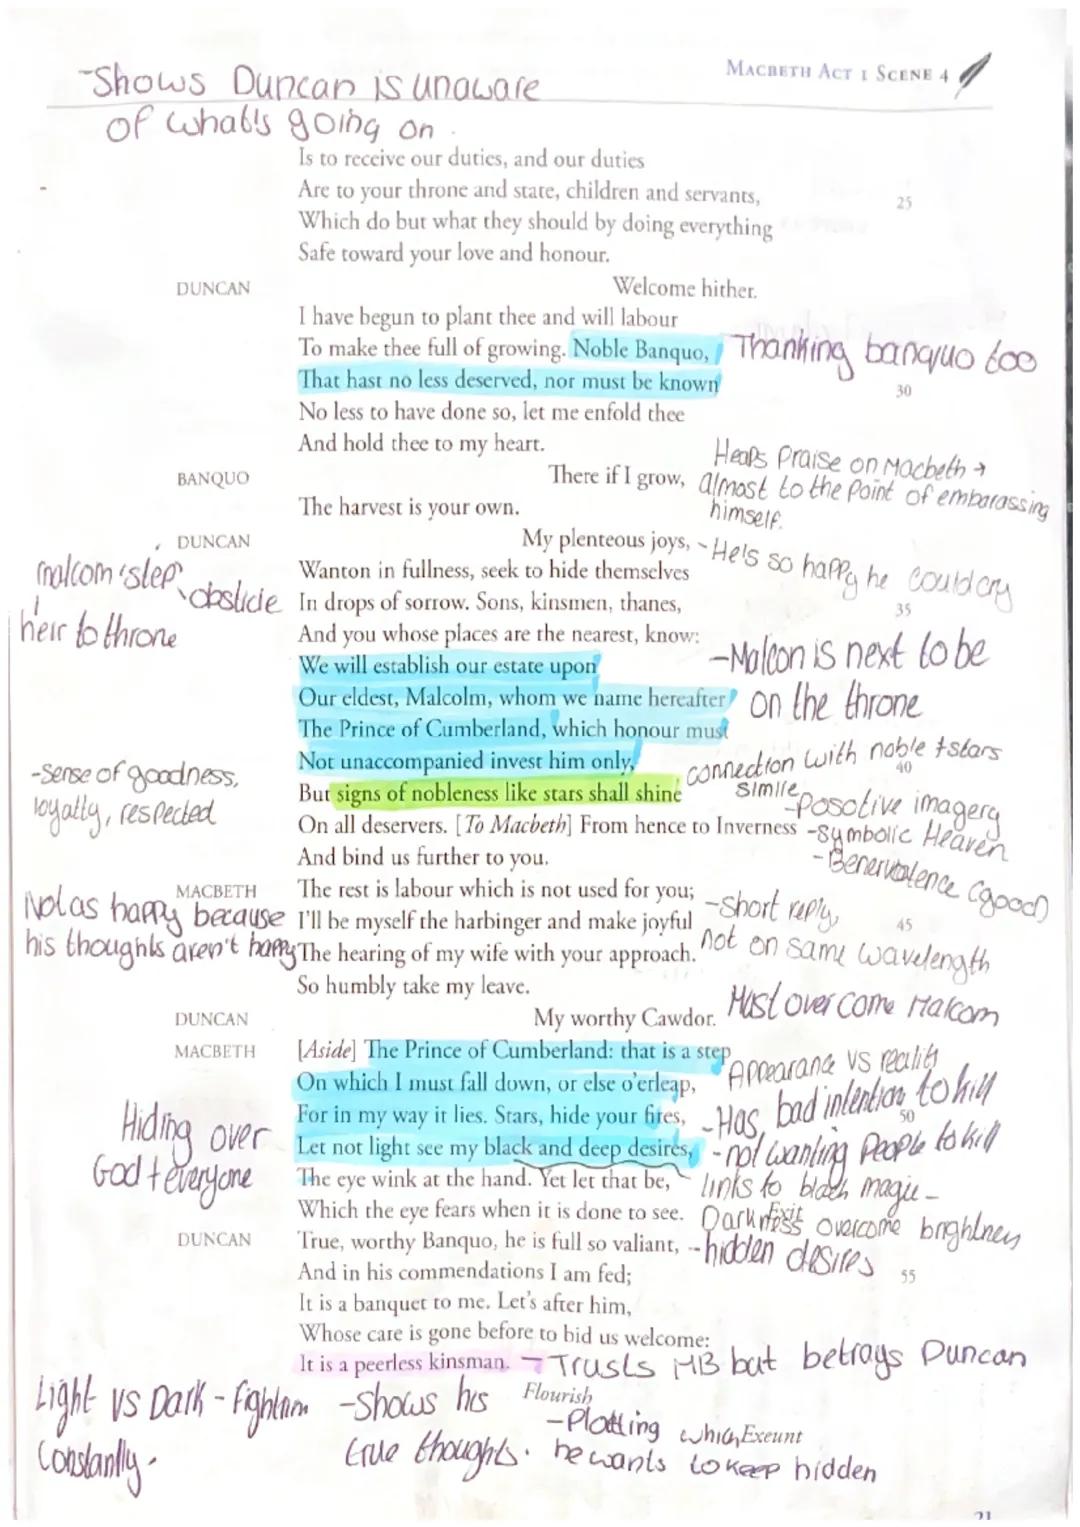 MACBETH ACT 1 SCENE 4
-Shows Duncan is unaware
of what's going on.
Is to receive our duties, and our duties
Are to your throne and state, children and servants,
25
Which do but what they should by doing everything
Safe toward your love and honour.
DUNCAN
Welcome hither.
I have begun to plant thee and will labour
To make thee full of growing. Noble Banquo,
Thanking banquo too
That hast no less deserved, nor must be known
30
No less to have done so, let me enfold thee
And hold thee to my heart.
Heaps Praise on Macbeth →
almost to the point of embarassing
himself.
BANQUO
There if I grow,
The harvest is your own.
DUNCAN
My plenteous joys,
-He's so happy he could cry
Wanton in fullness, seek to hide themselves
malcom 'step'
obsticle
heir to throne
In drops of sorrow. Sons, kinsmen, thanes,
35
And you whose places are the nearest, know:
We will establish our estate upon
-Malcon is next to be
on the throne
Our eldest, Malcolm, whom we name hereafter
The Prince of Cumberland, which honour must
Not unaccompanied invest him only,
connection with noble + stars
40
But signs of nobleness like stars shall shine
simile
-Sense of goodness,
loyalty, respected
-posotive imagery
On all deservers. [To Macbeth] From hence to Inverness
-Symbolic Heaven
And bind us further to you.
-Benervolence (good)
MACBETH
The rest is labour which is not used for you;
-short reply,
not on same wavelength
Not as happy because
his thoughts aren't happy
I'll be myself the harbinger and make joyful
45
The hearing of my wife with your approach.
So humbly take my leave.
DUNCAN
My worthy Cawdor.
Must over come Malcom
MACBETH
[Aside] The Prince of Cumberland: that is a step
Appearance vs reality
On which I must fall down, or else o'erleap,
For in my way it lies. Stars, hide your fires,
-Has bad intention to kill
50
Hiding over
God + everyone
Let not light see my black and deep desires,
-not wanting People to kill
The eye wink at the hand. Yet let that be,
links to black magic -
Which the eye fears when it is done to see.
Exit
Darkness overcome brightness
DUNCAN
True, worthy Banquo, he is full so valiant,
--hidden desires
And in his commendations I am fed;
55
It is a banquet to me. Let's after him,
Whose care is gone before to bid us welcome:
It is a peerless kinsman.
-Trusts MB but betrays Duncan
Flourish
Exeunt
Light vs Dark -
constantly.
-Shows his
true thoughts.
-Plotting which
he wants to keep hidden
21